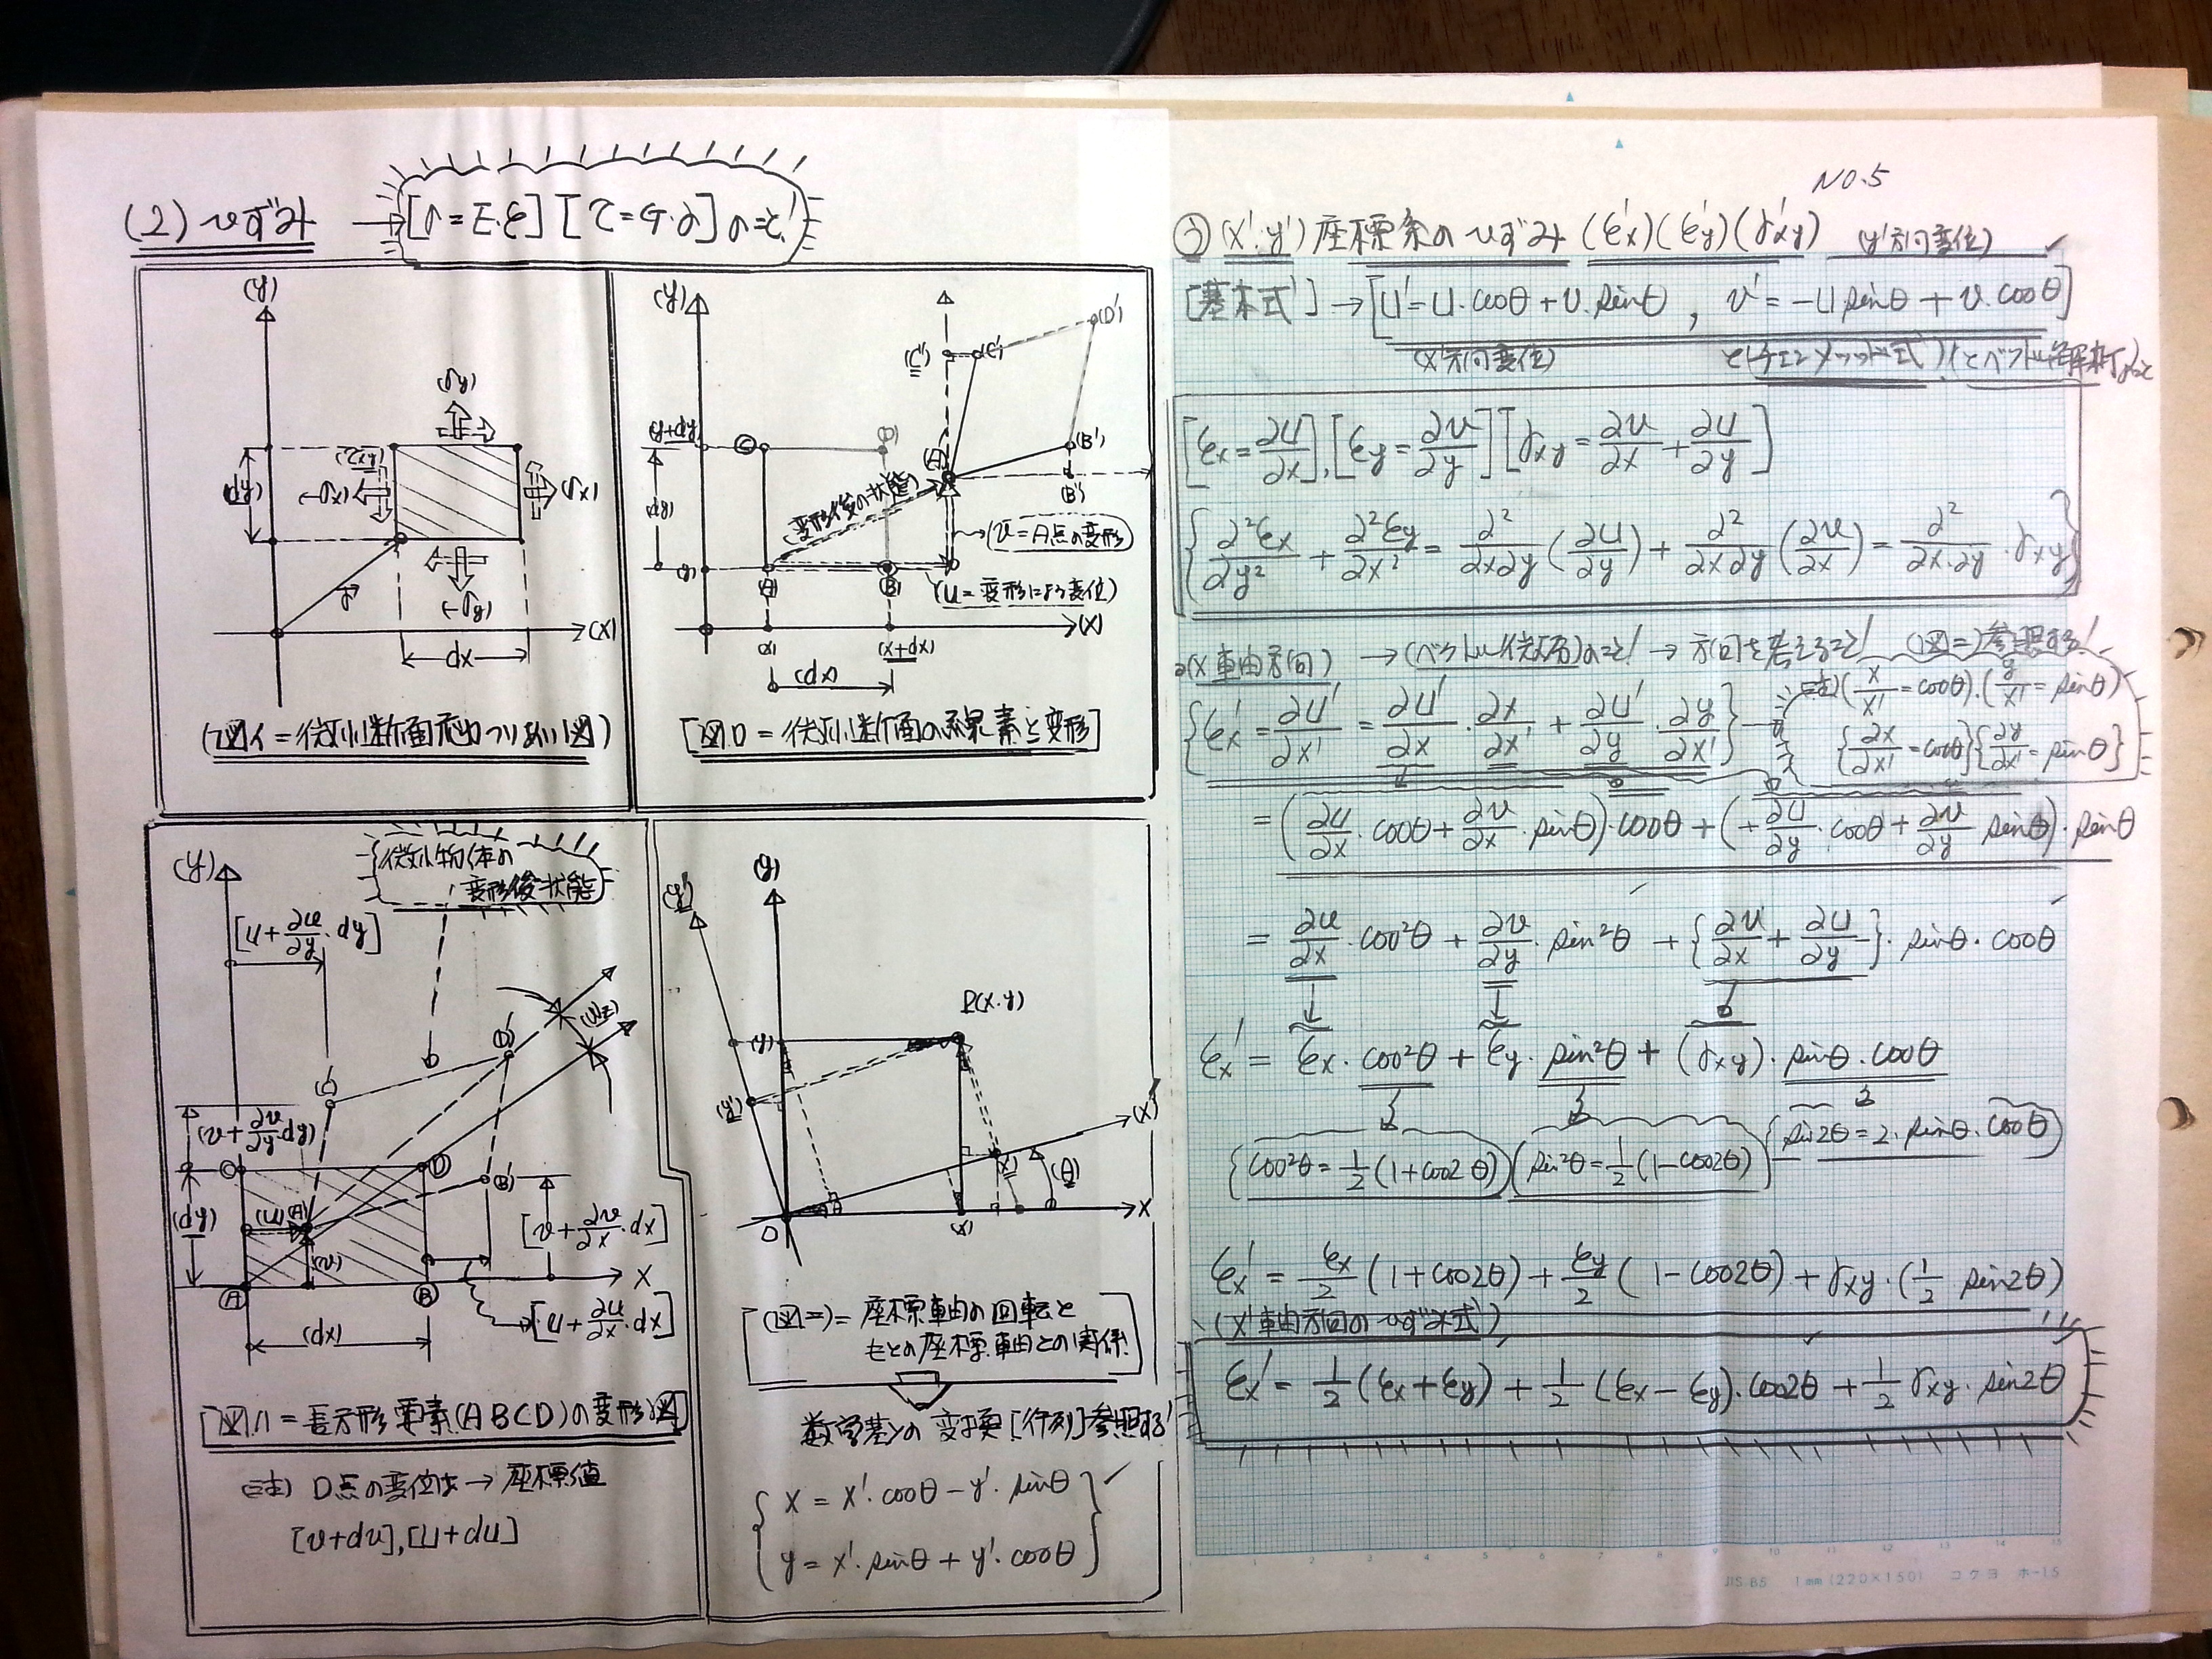 (2) ひずみ → [σ=E・ε] [τ=G・γ] のこと!
(y)
(σy)
(τxy)
(-σx)
(σx)
(dy)
(-σy)
(X)
dx
(図イ=微小断面応力つりあい図)
(y)
(C'')
(C')
(D')
(y+dy)
(C)
(D)
(A')
(B')
(B'')
変形後の状態
(dy)
(v=A点の変形)
y
(A)
(B)
(u=変形による変位)
(X)
(x)
(x+dx)
(dx)
[図ロ=微小断面の要素と変形]
微小物体の
変形後状態
(y)
[u+∂u/∂y・dy]
(C')
(D')
(v+∂v/∂y・dy)
(C)
(D)
(B')
(dy)
(u)
(A')
(v)
[v+∂v/∂x・dx]
X
(A)
(B)
[u+∂u/∂x・dx]
(dx)
[図ハ=長方形要素(ABCD)の変形図]
(注) D点の変位は→座標値
[v+dv],[u+du]
(y')
(y)
P(x・y)
(y)
(y')
(X')
(x')
(θ)
O
(x)
X
(図ニ)=座標軸の回転と
もとの座標軸との関係
数学基Yの変換[行列]参照する!
x = x'・cosθ - y'・sinθ
y = x'・sinθ + y'・cosθ
NO.5
(x'・y')座標系のひずみ (ε'x)(ε'y)(γ'xy) (y'方向変位)
[基本式] → [u'=u・cosθ+v・sinθ , v'=-u sinθ+v・cosθ]
(x'方向変位)
[εx=∂u/∂x],[εy=∂v/∂y][γxy=∂v/∂x+∂u/∂y]
{∂²εx/∂y²+∂²εy/∂x²=∂²/∂x∂y(∂u/∂y)+∂²/∂x∂y(∂v/∂x)=∂²/∂x・∂y・γxy}
(X軸方向) →(ベクトル微分)のこと! → 方向を考えること! (図ニ)参照する!
注)(x/x'=cosθ)・(y/x'=sinθ)
{ε'x=∂u'/∂x'=∂u'/∂x・∂x/∂x'+∂u'/∂y・∂y/∂x'}
{∂x/∂x'=cosθ}{∂y/∂x'=sinθ}
=(∂u/∂x・cosθ+∂v/∂x・sinθ)・cosθ+(+∂u/∂y・cosθ+∂v/∂y sinθ)・sinθ
=∂u/∂x・cos²θ+∂v/∂y・sin²θ+{∂v/∂x+∂u/∂y}・sinθ・cosθ
ε'x=εx・cos²θ+εy・sin²θ+(γxy)・sinθ・cosθ
{cos²θ=1/2(1+cos2θ)}{sin²θ=1/2(1-cos2θ)}{sin2θ=2・sinθ・cosθ}
ε'x=εx/2(1+cos2θ)+εy/2(1-cos2θ)+γxy・(1/2 sin2θ)
(X'軸方向のひずみ式)
ε'x=1/2(εx+εy)+1/2(εx-εy)・cos2θ+1/2γxy・sin2θ
JIS B5 1mm(220×150) コクヨ ホ-15